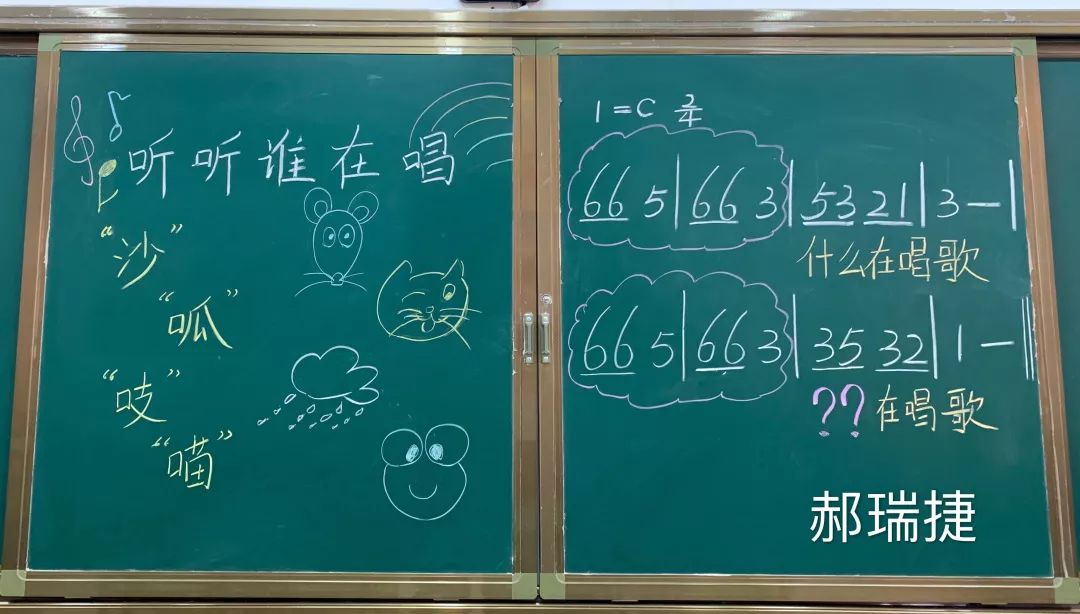 听听谁在唱
“沙”
“呱”
“吱”
“喵”
1=C 2/4
66 5|66 3|53 21|3—|
什么在唱歌
66 5|66 3|35 32|1—‖
??在唱歌
郝瑞捷